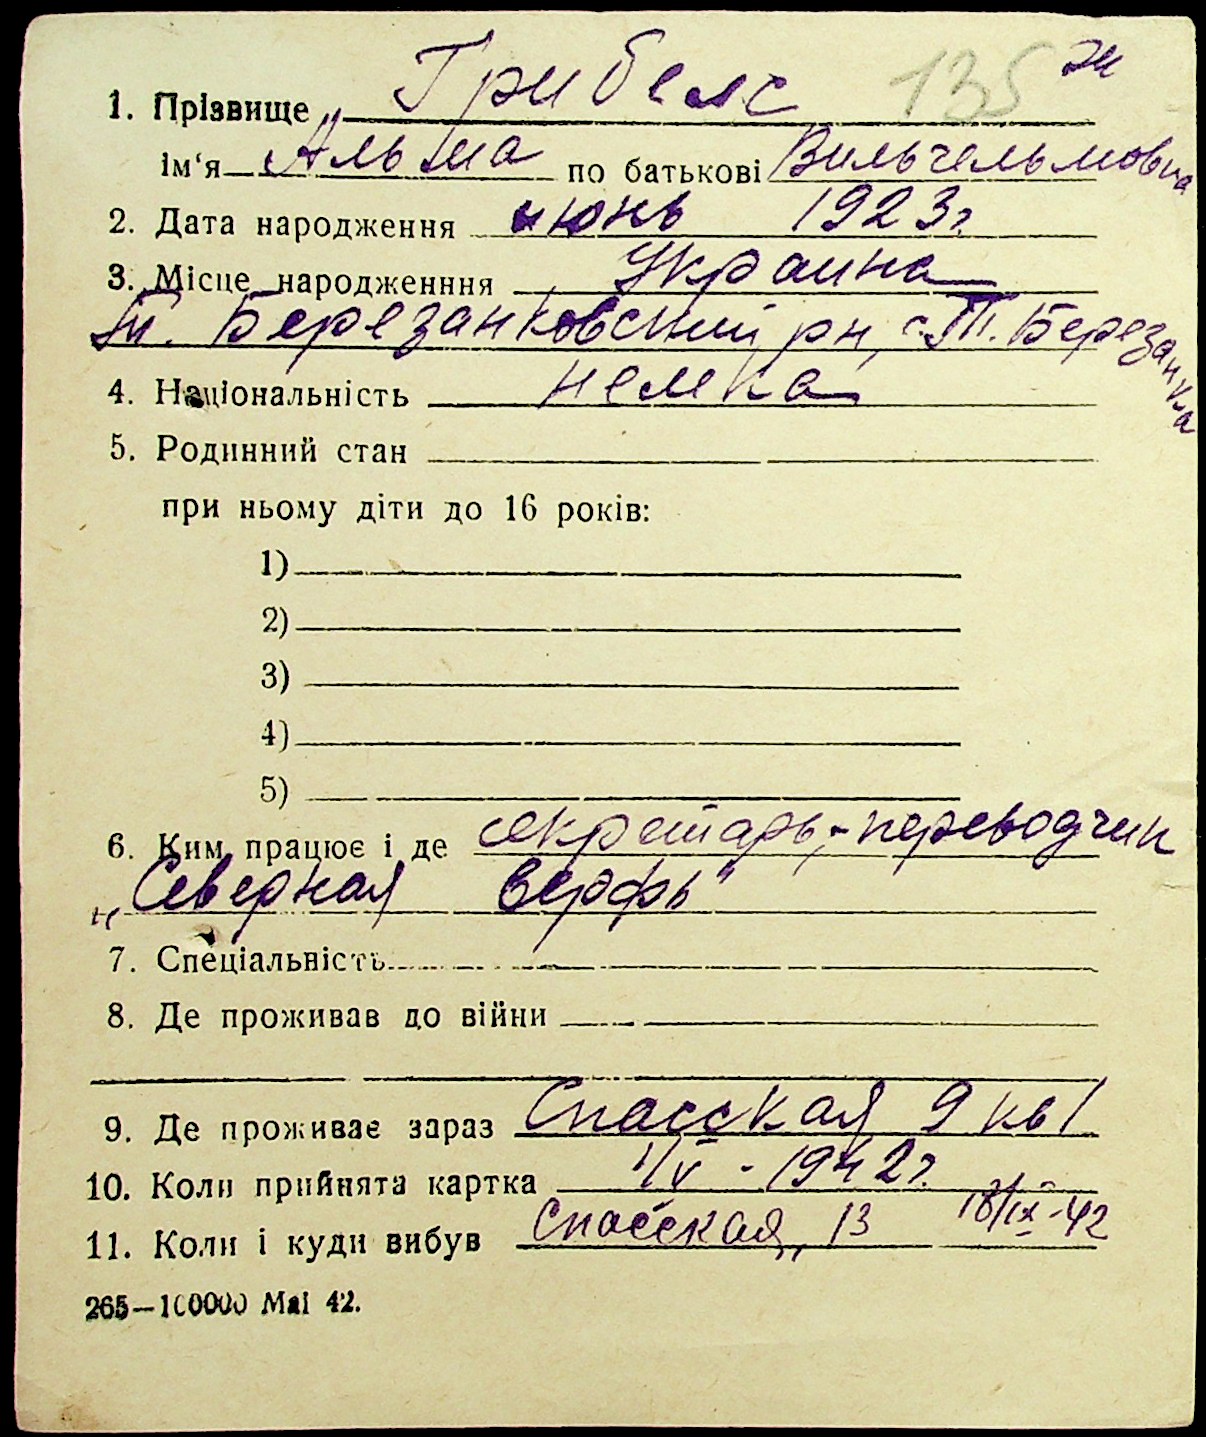 135 эк
1. Прізвище Грибелс
ім'я Альма по батькові Вильгельмовна
2. Дата народження июнь 1923г
3. Місце народженння Украина
Т. Березанковский рн, с. Т. Березанка
4. Національність немка
5. Родинний стан
при ньому діти до 16 років:
1)
2)
3)
4)
5)
6. Ким працює і де секретарь-переводчик
„Северная верфь"
7. Спеціальність
8. Де проживав до війни
9. Де проживає зараз Спасская 9 кв 1
10. Коли прийнята картка 1/V - 1942г.
11. Коли і куди вибув Спасская, 13 18/IX-42
265—100000 Маі 42.